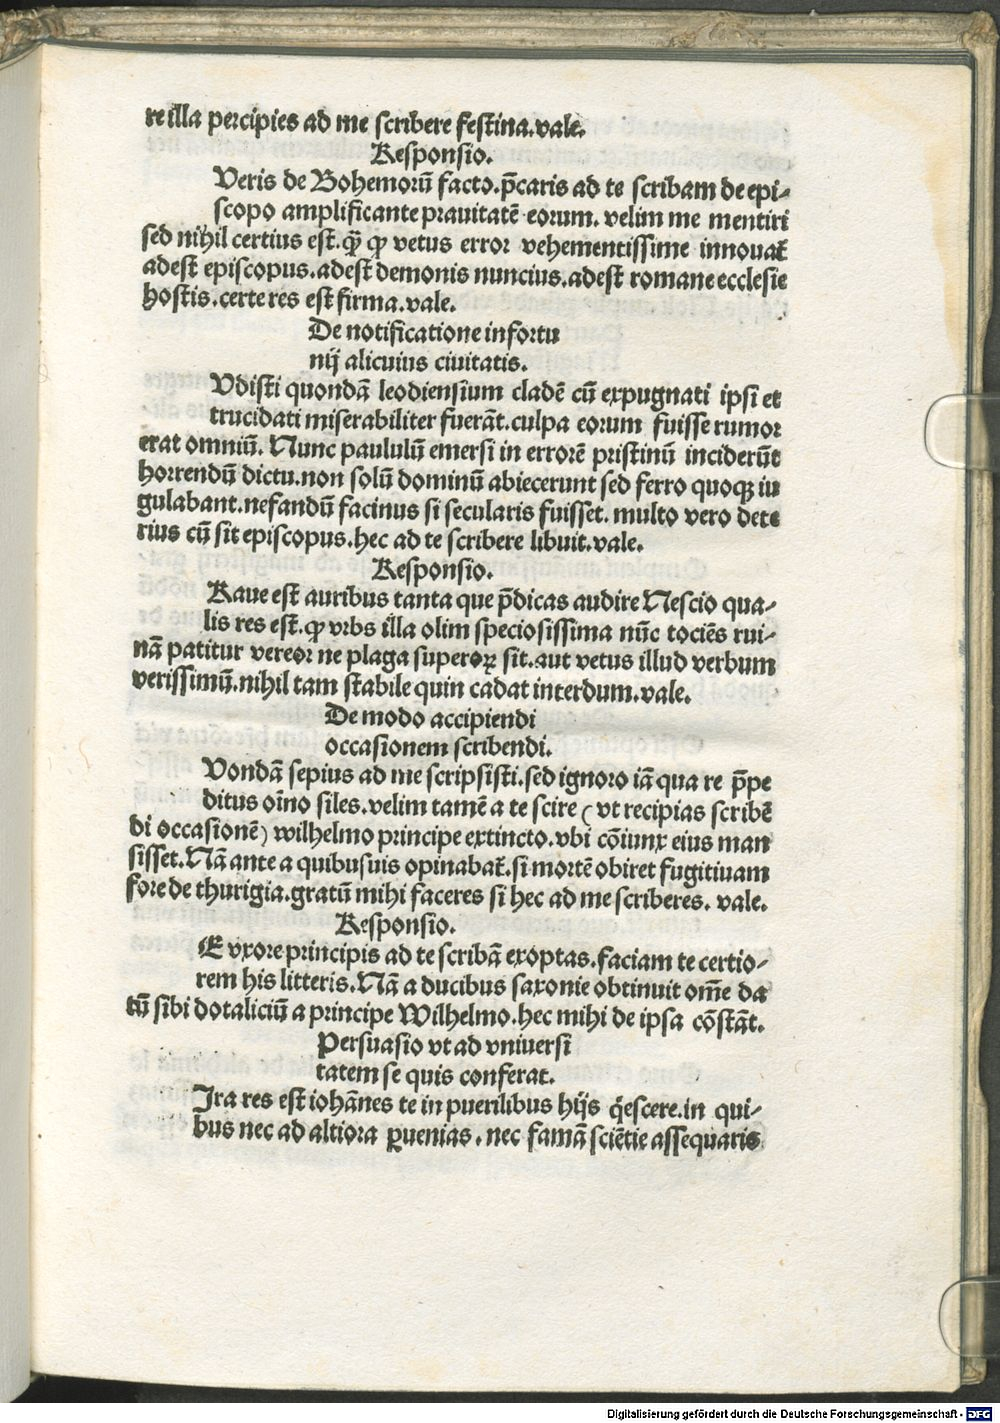 re illa percipies ad me scribere festina.vale.
Responsio.
Veris de Bohemorū facto.p̄caris ad te scribam de epi-
scopo amplificante prauitatē eorum. velim me mentiri
sed nihil certius est.q̄ꝫ ꝙ vetus error vehementissime innouat᷑
adest episcopus.adest demonis nuncius.adest romane ecclesie
hostis.certe res est firma.vale.
De notificatione infortu
nij alicuius ciuitatis.
Vdisti quondā leodiensium cladē cū expugnati ipsi et
trucidati miserabiliter fuerāt.culpa eorum fuisse rumor
erat omniū. Nunc paululū emersi in errorē pristinū inciderūt
horrendū dictu.non solū dominū abiecerunt sed ferro quoqꝫ iu
gulabant.nefandū facinus si secularis fuisset. multo vero dete
rius cū sit episcopus.hec ad te scribere libuit.vale.
Responsio.
Raue est auribus tanta que p̄dicas audire Nescio qua-
lis res est.ꝙ vrbs illa olim speciosissima nūc tociēs rui-
nā patitur vereor ne plaga superoꝝ sit.aut vetus illud verbum
verissimū.nihil tam stabile quin cadat interdum.vale.
De modo accipiendi
occasionem scribendi.
Vondā sepius ad me scripsisti.sed ignoro iā qua re p̄pe
ditus oīno siles.velim tamē a te scire (vt recipias scribē
di occasionē) wilhelmo principe extincto.vbi cōiunx eius man
sisset.Nā ante a quibusuis opinabat᷑.si mortē obiret fugitiuam
fore de thurigia.gratū mihi faceres si hec ad me scriberes. vale.
Responsio.
E vxore principis ad te scribā exoptas.faciam te certio-
rem his litteris.Nā a ducibus saxonie obtinuit om̄e da
tū sibi dotaliciū a principe Wilhelmo.hec mihi de ipsa cōstāt.
Persuasio vt ad vniuersi
tatem se quis conferat.
Ira res est iohānes te in puerilibus hijs q̇escere.in qui-
bus nec ad altiora ꝑuenias. nec famā sciētie assequaris
Digitalisierung gefördert durch die Deutsche Forschungsgemeinschaft - DFG